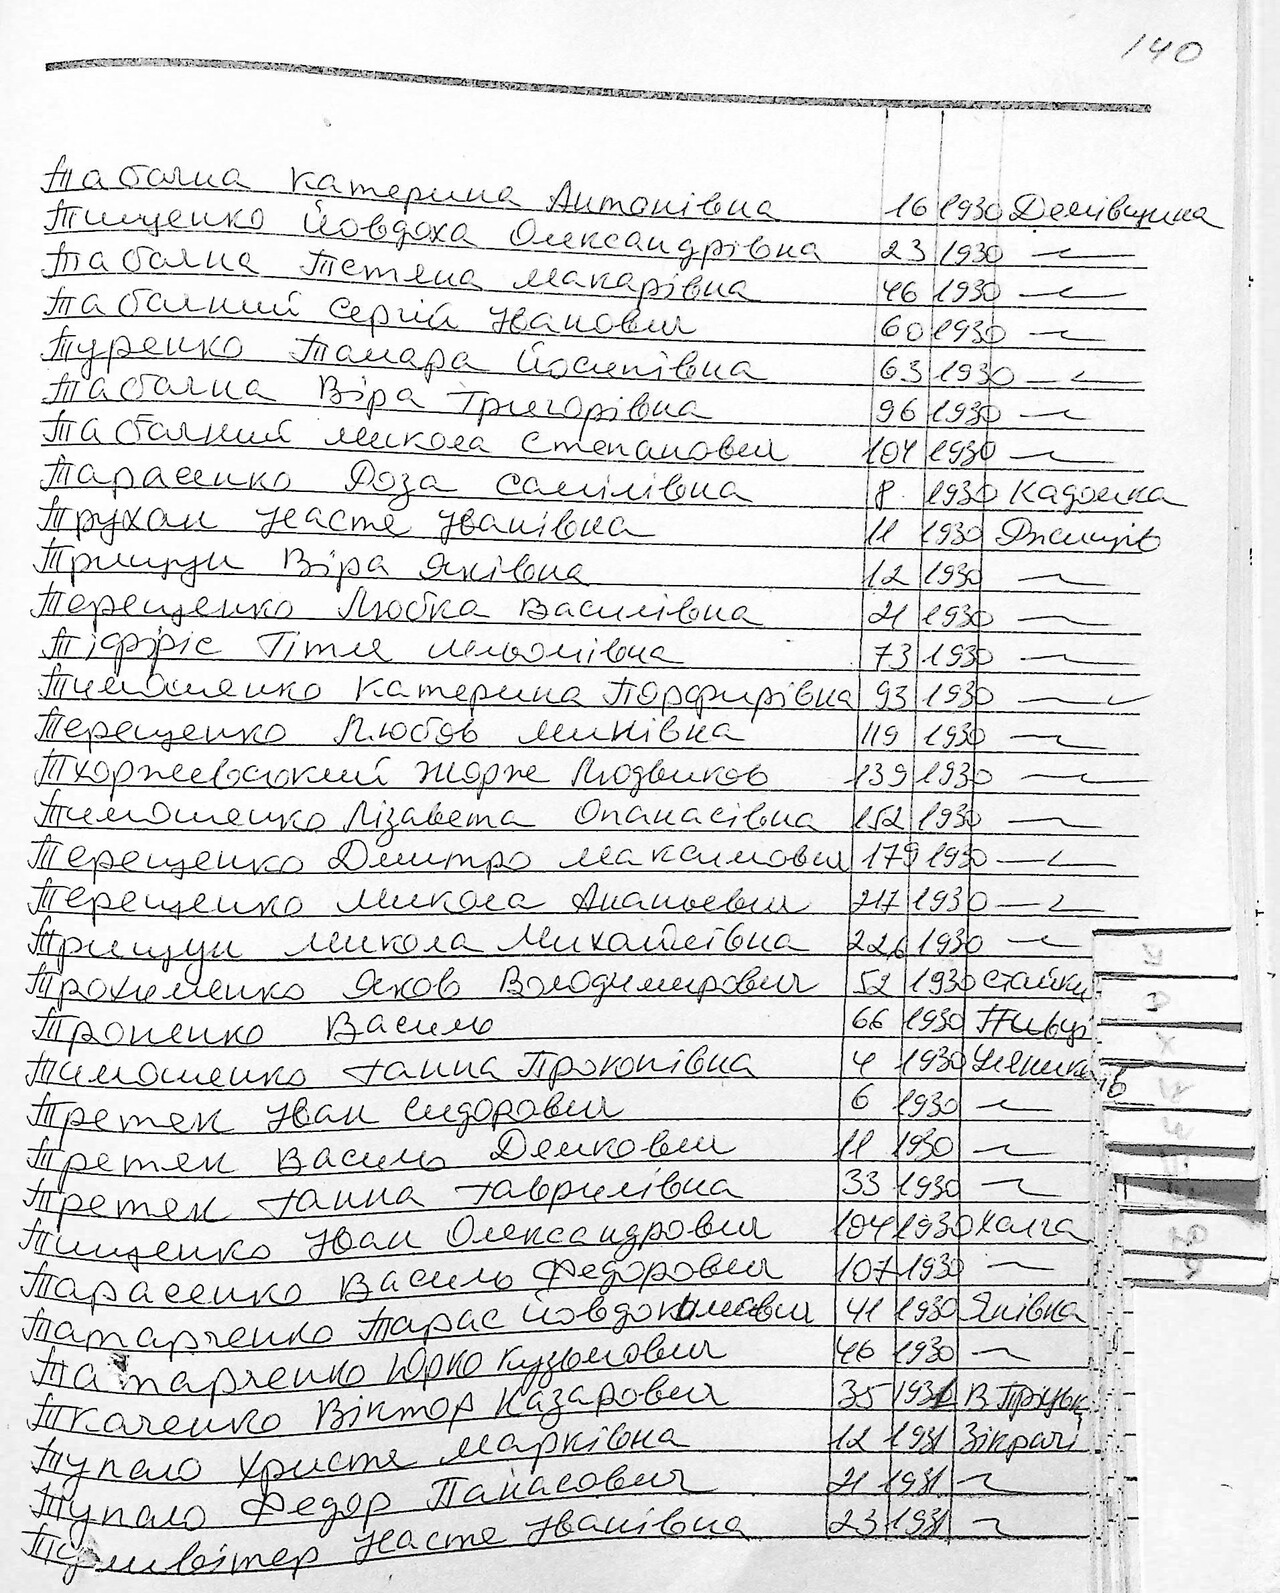 140
Табачна Катерина Антонівна 16 1930 Демівщина
Тищенко Йовдоха Олександрівна 23 1930 —〃—
Табачна Тетяна Макарівна 46 1930 —〃—
Табачний Сергій Іванович 60 1930 —〃—
Туренко Тамара Йосипівна 63 1930 —〃—
Табачна Віра Григорівна 96 1930 —〃—
Табачний Микола Степанович 104 1930 —〃—
Тарасенко Роза Самілівна 8 1930 Кадомка
Трухан Настя Іванівна 11 1930 Ржищів
Трищун Віра Яківна 12 1930 —〃—
Терещенко Любка Василівна 21 1930 —〃—
Тіфріс Гітля 73 1930 —〃—
Тимошенко Катерина Порфирівна 93 1930 —〃—
Терещенко Любов Минівна 119 1930 —〃—
Тхоржевський Жорж Людвиков 139 1930 —〃—
Тимошенко Лізавета Опанасівна 152 1930 —〃—
Терещенко Дмитро Максимович 179 1930 —〃—
Терещенко Микола Ананьевич 217 1930 —〃—
Трищун Микола Михайлівна 226 1930 —〃—
Трохименко Яков Володимирович 52 1930 Стайки
Троненко Василь 66 1930 Пивці
Тимошенко Ганна Прокопівна 4 1930 Уляників
Претяк Іван Сидорович 6 1930 —〃—
Третяк Василь Демкович 11 1930 —〃—
Третяк Ганна Гаврилівна 33 1930 —〃—
Тищенко Іван Олександрович 104 1930 Халча
Тарасенко Василь Федорович 107 1930 —〃—
Татарченко Тарас Йовдокимович 41 1930 Янівка
Татарченко Юрко Кузьмович 46 1930 —〃—
Ткаченко Віктор Казарович 35 1931 В
Тупало Христя Марківна 12 1931 Зікрачі
Тупало Федор Панасович 21 1931 —〃—
Настя Іванівна 23 1931 —〃—